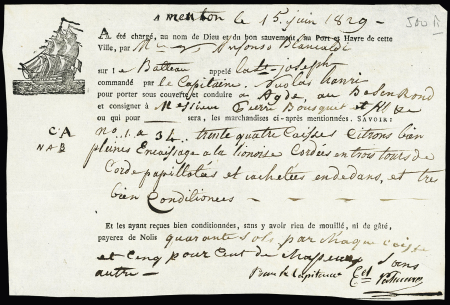 a menton le 15 juin 1829
500 R
A été chargé, au nom de Dieu et du bon sauvement, au Port et Havre de cette
Ville, par Mr
sur le Batteau appelé St Joseph
commandé par le Capitaine Nicolas
pour porter sous couverte et conduire à Agde, au Bosc Rond
et consigner à Messieurs Pierre Bousquet et
ou qui pour sera, les marchandises ci-après mentionnées. SAVOIR:
CA No. 1. a 34. trente quatre Caisses Citrons bien
NAB pleines Encaissage a la lionoise Cordées en trois tours de
Corde papillotées et cachettées en dedans, et tres
bien Conditionees
Et les ayant reçues bien conditionnées, sans y avoir rien de mouillé, ni de gâté,
payerez de Nolis quarante sols par Chaque Caisse
et Cinq pour Cent de sans
autre
Pour le Capitaine